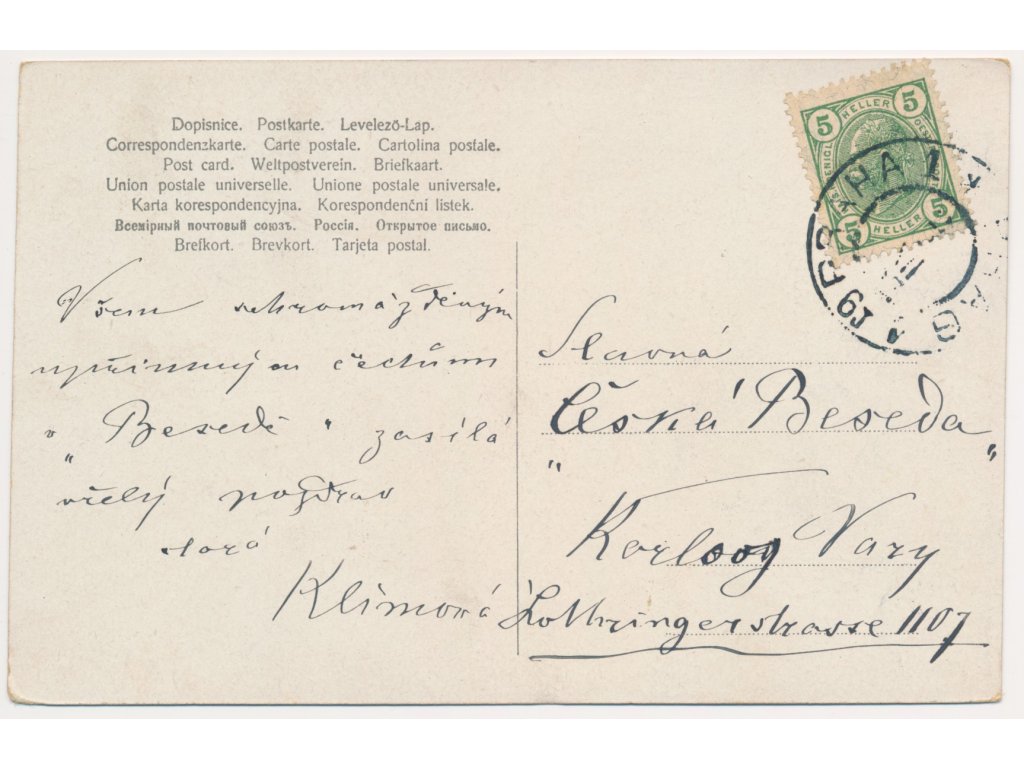 Dopisnice. Postkarte. Levelező-Lap.
Correspondenzkarte. Carte postale. Cartolina postale.
Post card. Weltpostverein. Briefkaart.
Union postale universelle. Unione postale universale.
Karta korespondencyjna. Korespondenční listek.
Всемірный почтовый союзъ. Россія. Открытое письмо.
Brefkort. Brevkort. Tarjeta postal.
Všem schromážděným
upřímným čechům
v „Besedě“ zasílá
vřelý pozdrav
stará
Klímová
Slavná
„Česká Beseda“
Karlovy Vary
Lothringerstrasse 1107
5 HELLER 5
5 HELLER 5
PRAHA 1